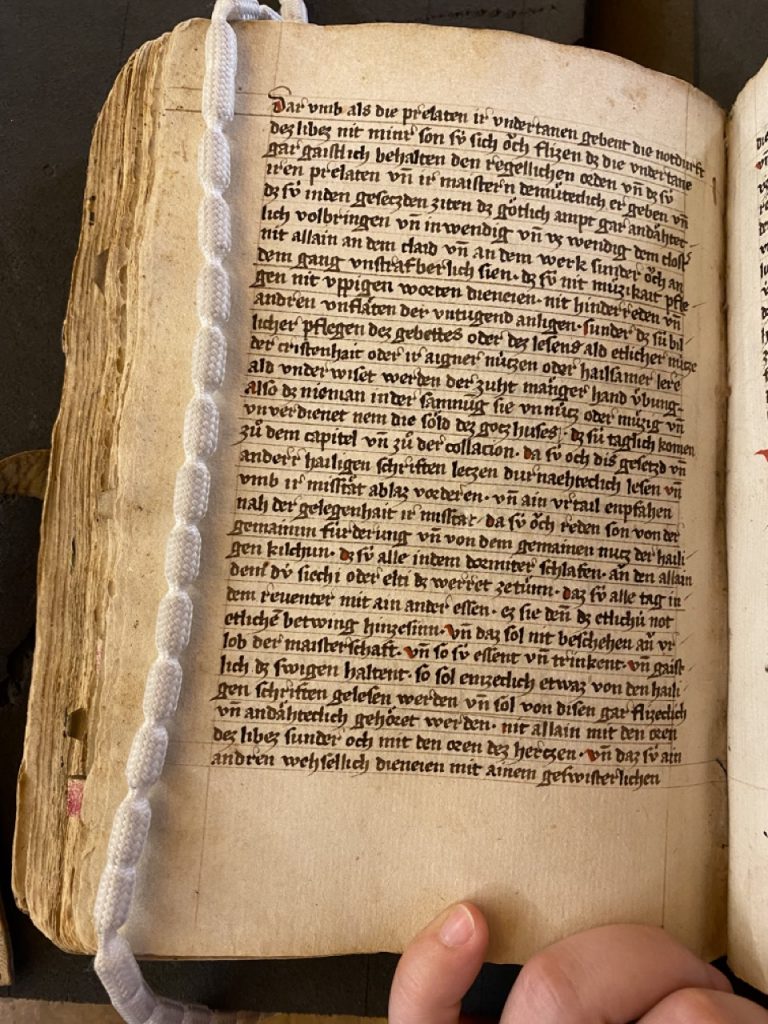 Dar vmb als die prelaten ir vndertanen gebent die notdurft
dez libez nit minr son sv̓ sich o̊ch flizen dz die vndertane
gar gaistlich behalten den regellichen orden vn̄ dz sv̓
iren prelaten vn̄ ir maistern demu̍teclich er geben vn̄
dz sv̓ inden gesetzden ziten dz go̍tlich ampt gar anda̍htec-
lich volbringen vn̄ inwendig vn̄ vz wendig dem closs̓
nit allain an dem claid vn̄ an dem werk sunder o̊ch an
dem gang vnstrafberlich sien · dz sv̓ nit mu̍zikait pfle
gen nit v̍ppigen worten dieneien · nit hinder reden vn̄
andren vnfla̍ten der vntugend anligen · sunder dz su̍ bil
licher pflegen dez gebettes oder dez lesens ald etlicher nu̍tze
der cristenhait oder ir aigner nu̍tzen oder hailsamer lere
ald vnder wiset werden der zuht ma̍nger hand v̍bung-
also dz nieman inder samnu̅g sie vnnu̍tz oder mu̍zig vn̄
vnverdienet nem die so̍ld dez gotz huses · dz su̍ ta̍glich komen
zů dem capitel vn̄ zů der collacion · da sv̓ och dis gesetzd vn̄
anderr hailigen schriften letzen durnaehteclich lesen vn̄
vmb ir missta̍t ablaz vorderen · vn̄ ain vrtail enpfahen
nah der gelegenhait ir misstat · da sv̓ o̊ch reden son von der
gemainun fu̍rderung vn̄ von dem gemainen nutz der haili
gen kilchun · dz sv̓ alle indem dormiter schlafen · an den allain
dem̄ dv̓ siechi oder elti dz werret zetu̅nn · daz sv̓ alle tag in
dem reventer mit ain ander essen · ez sie den̄ dz etlichu̍ not
etlichē betwing hinzesinn · vn̄ daz sol nit beschehen an̄ vr
lob der maisterschaft · vn̄ so sv̓ essent vn̄ trinkent · vn̄ gaist
lich dz swigen haltent · so sol emzeclich etwaz von den haili
gen schriften gelesen werden vn̄ sol von disen gar flizeclich
vn̄ anda̍hteclich geho̍ret werden · nit allain mit den oren
dez libez sunder och mit den oren dez hertzen · vn̄ daz sv̓ ain
andren wehsellich dieneien mit ainem geswisterlichen